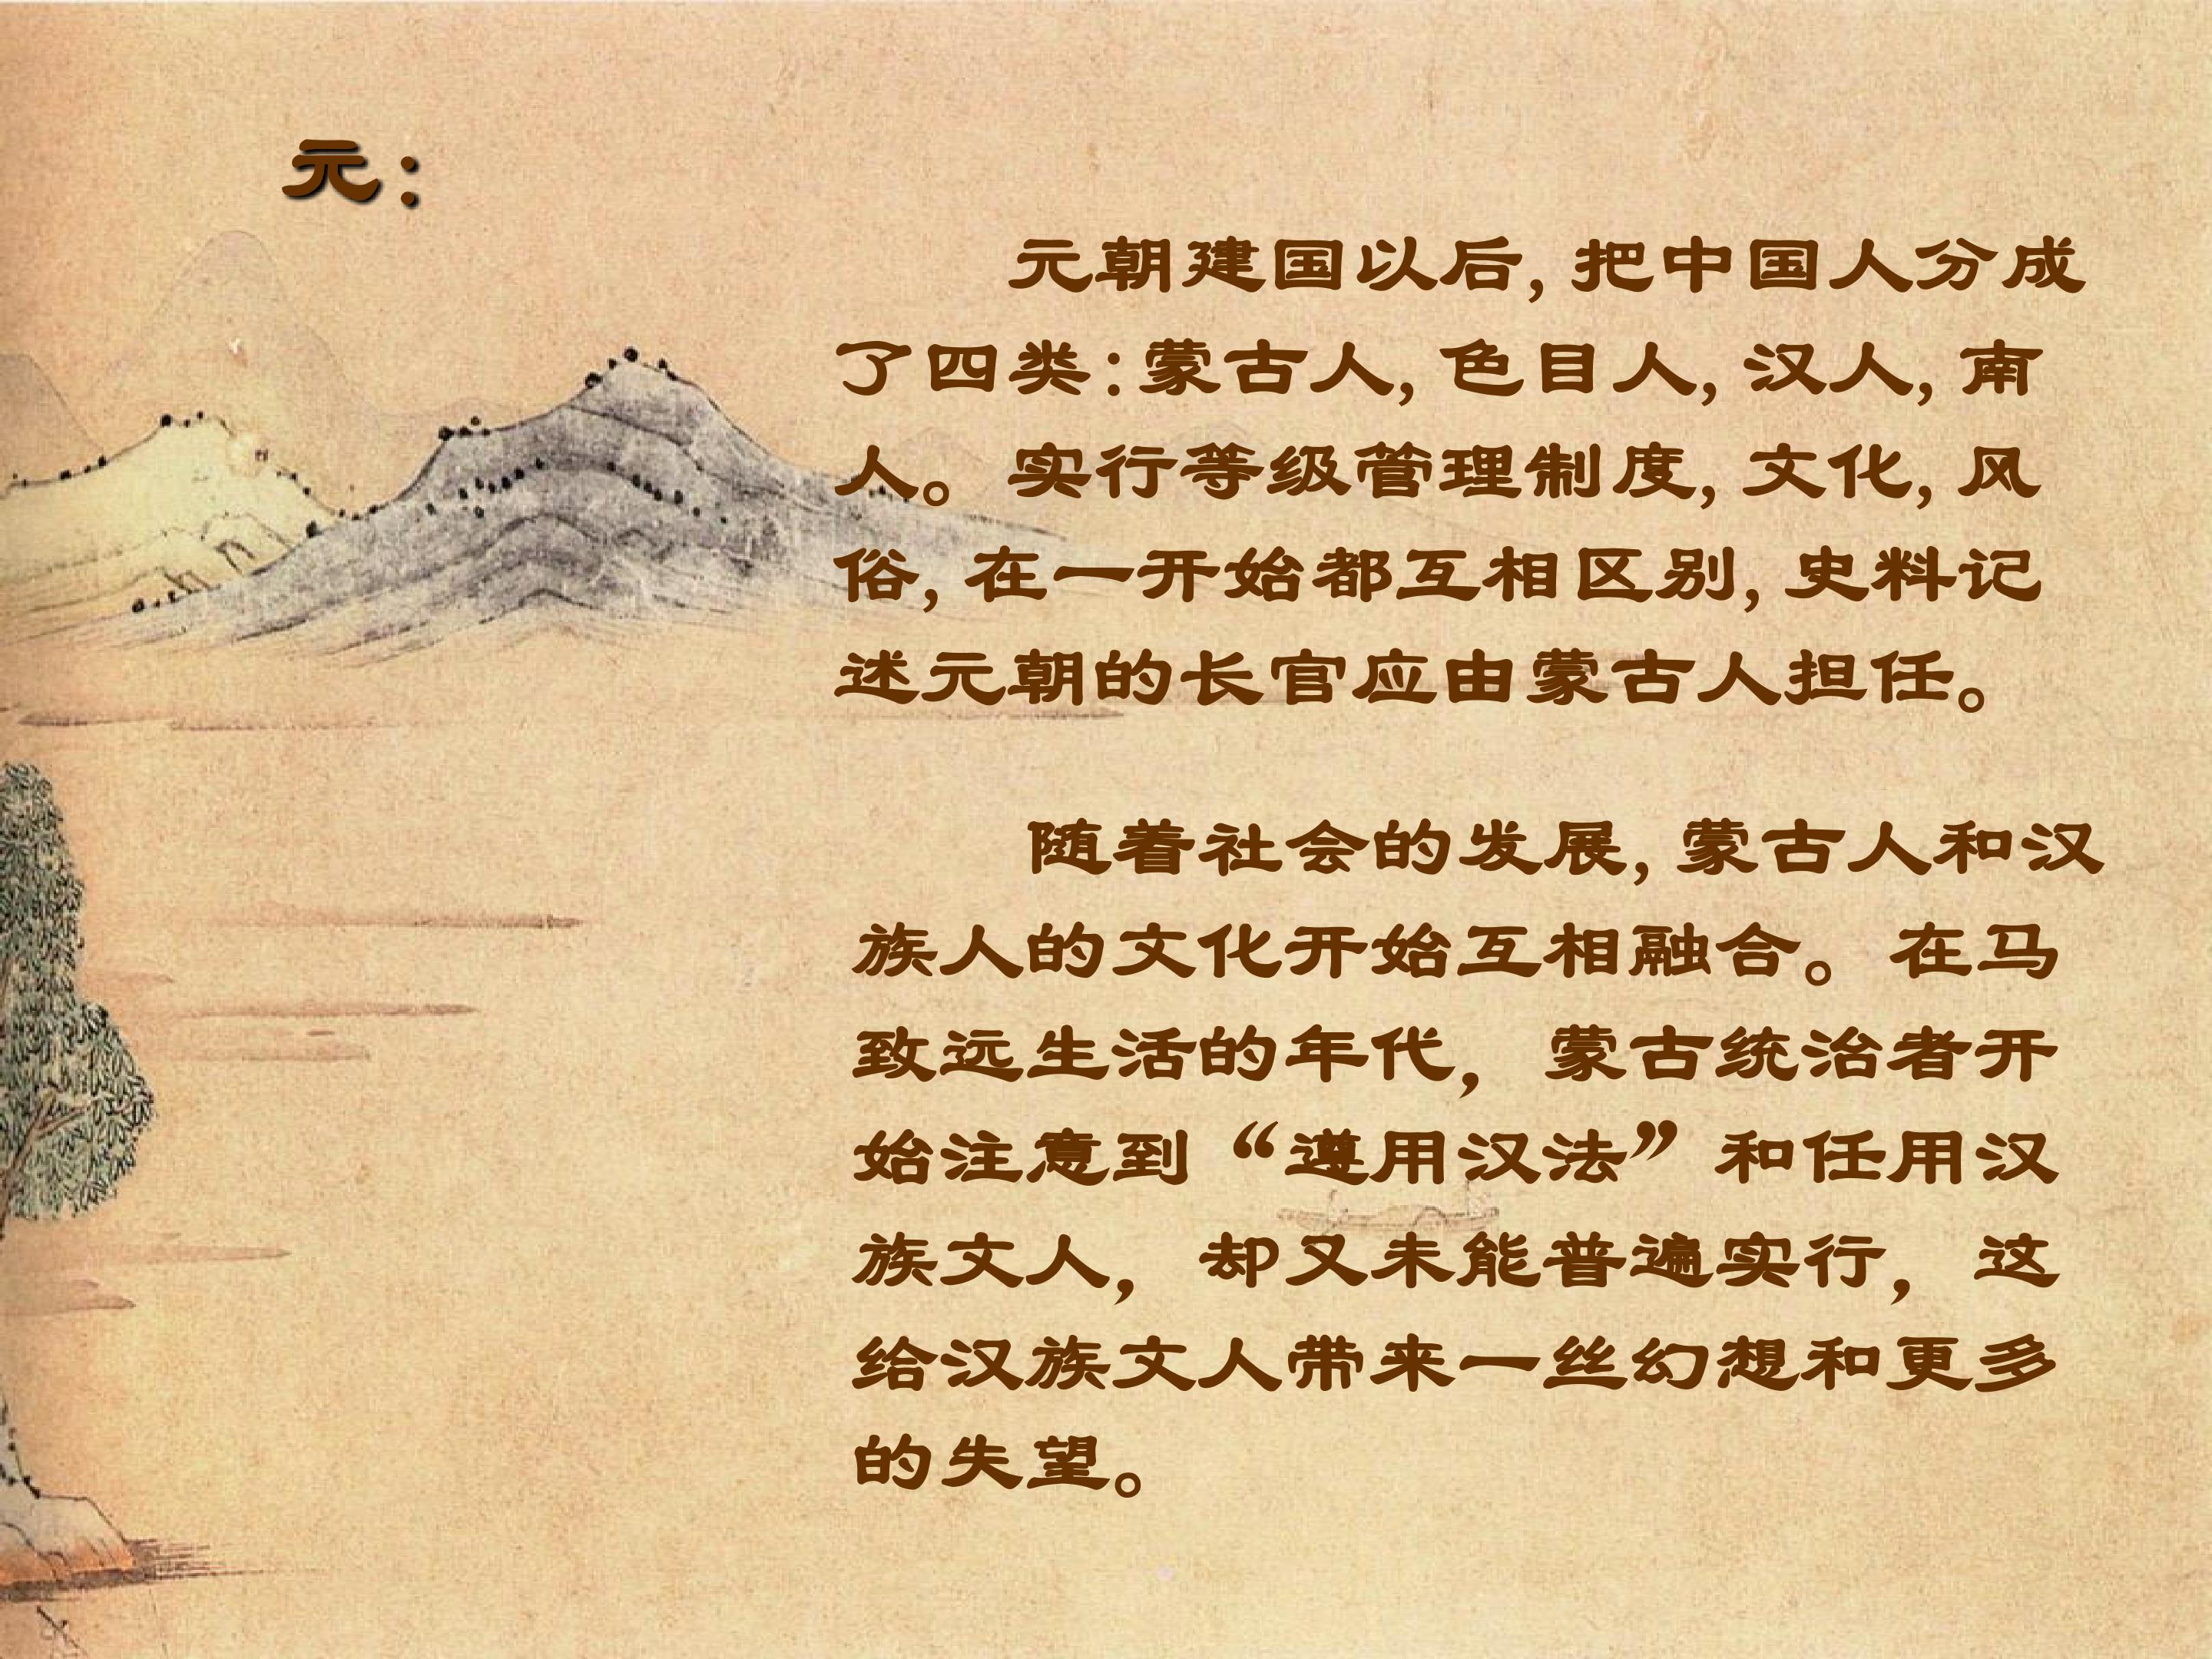 元：
元朝建国以后,把中国人分成
了四类:蒙古人,色目人,汉人,南
人。实行等级管理制度,文化,风
俗,在一开始都互相区别,史料记
述元朝的长官应由蒙古人担任。
随着社会的发展,蒙古人和汉
族人的文化开始互相融合。在马
致远生活的年代，蒙古统治者开
始注意到“遵用汉法”和任用汉
族文人，却又未能普遍实行，这
给汉族文人带来一丝幻想和更多
的失望。